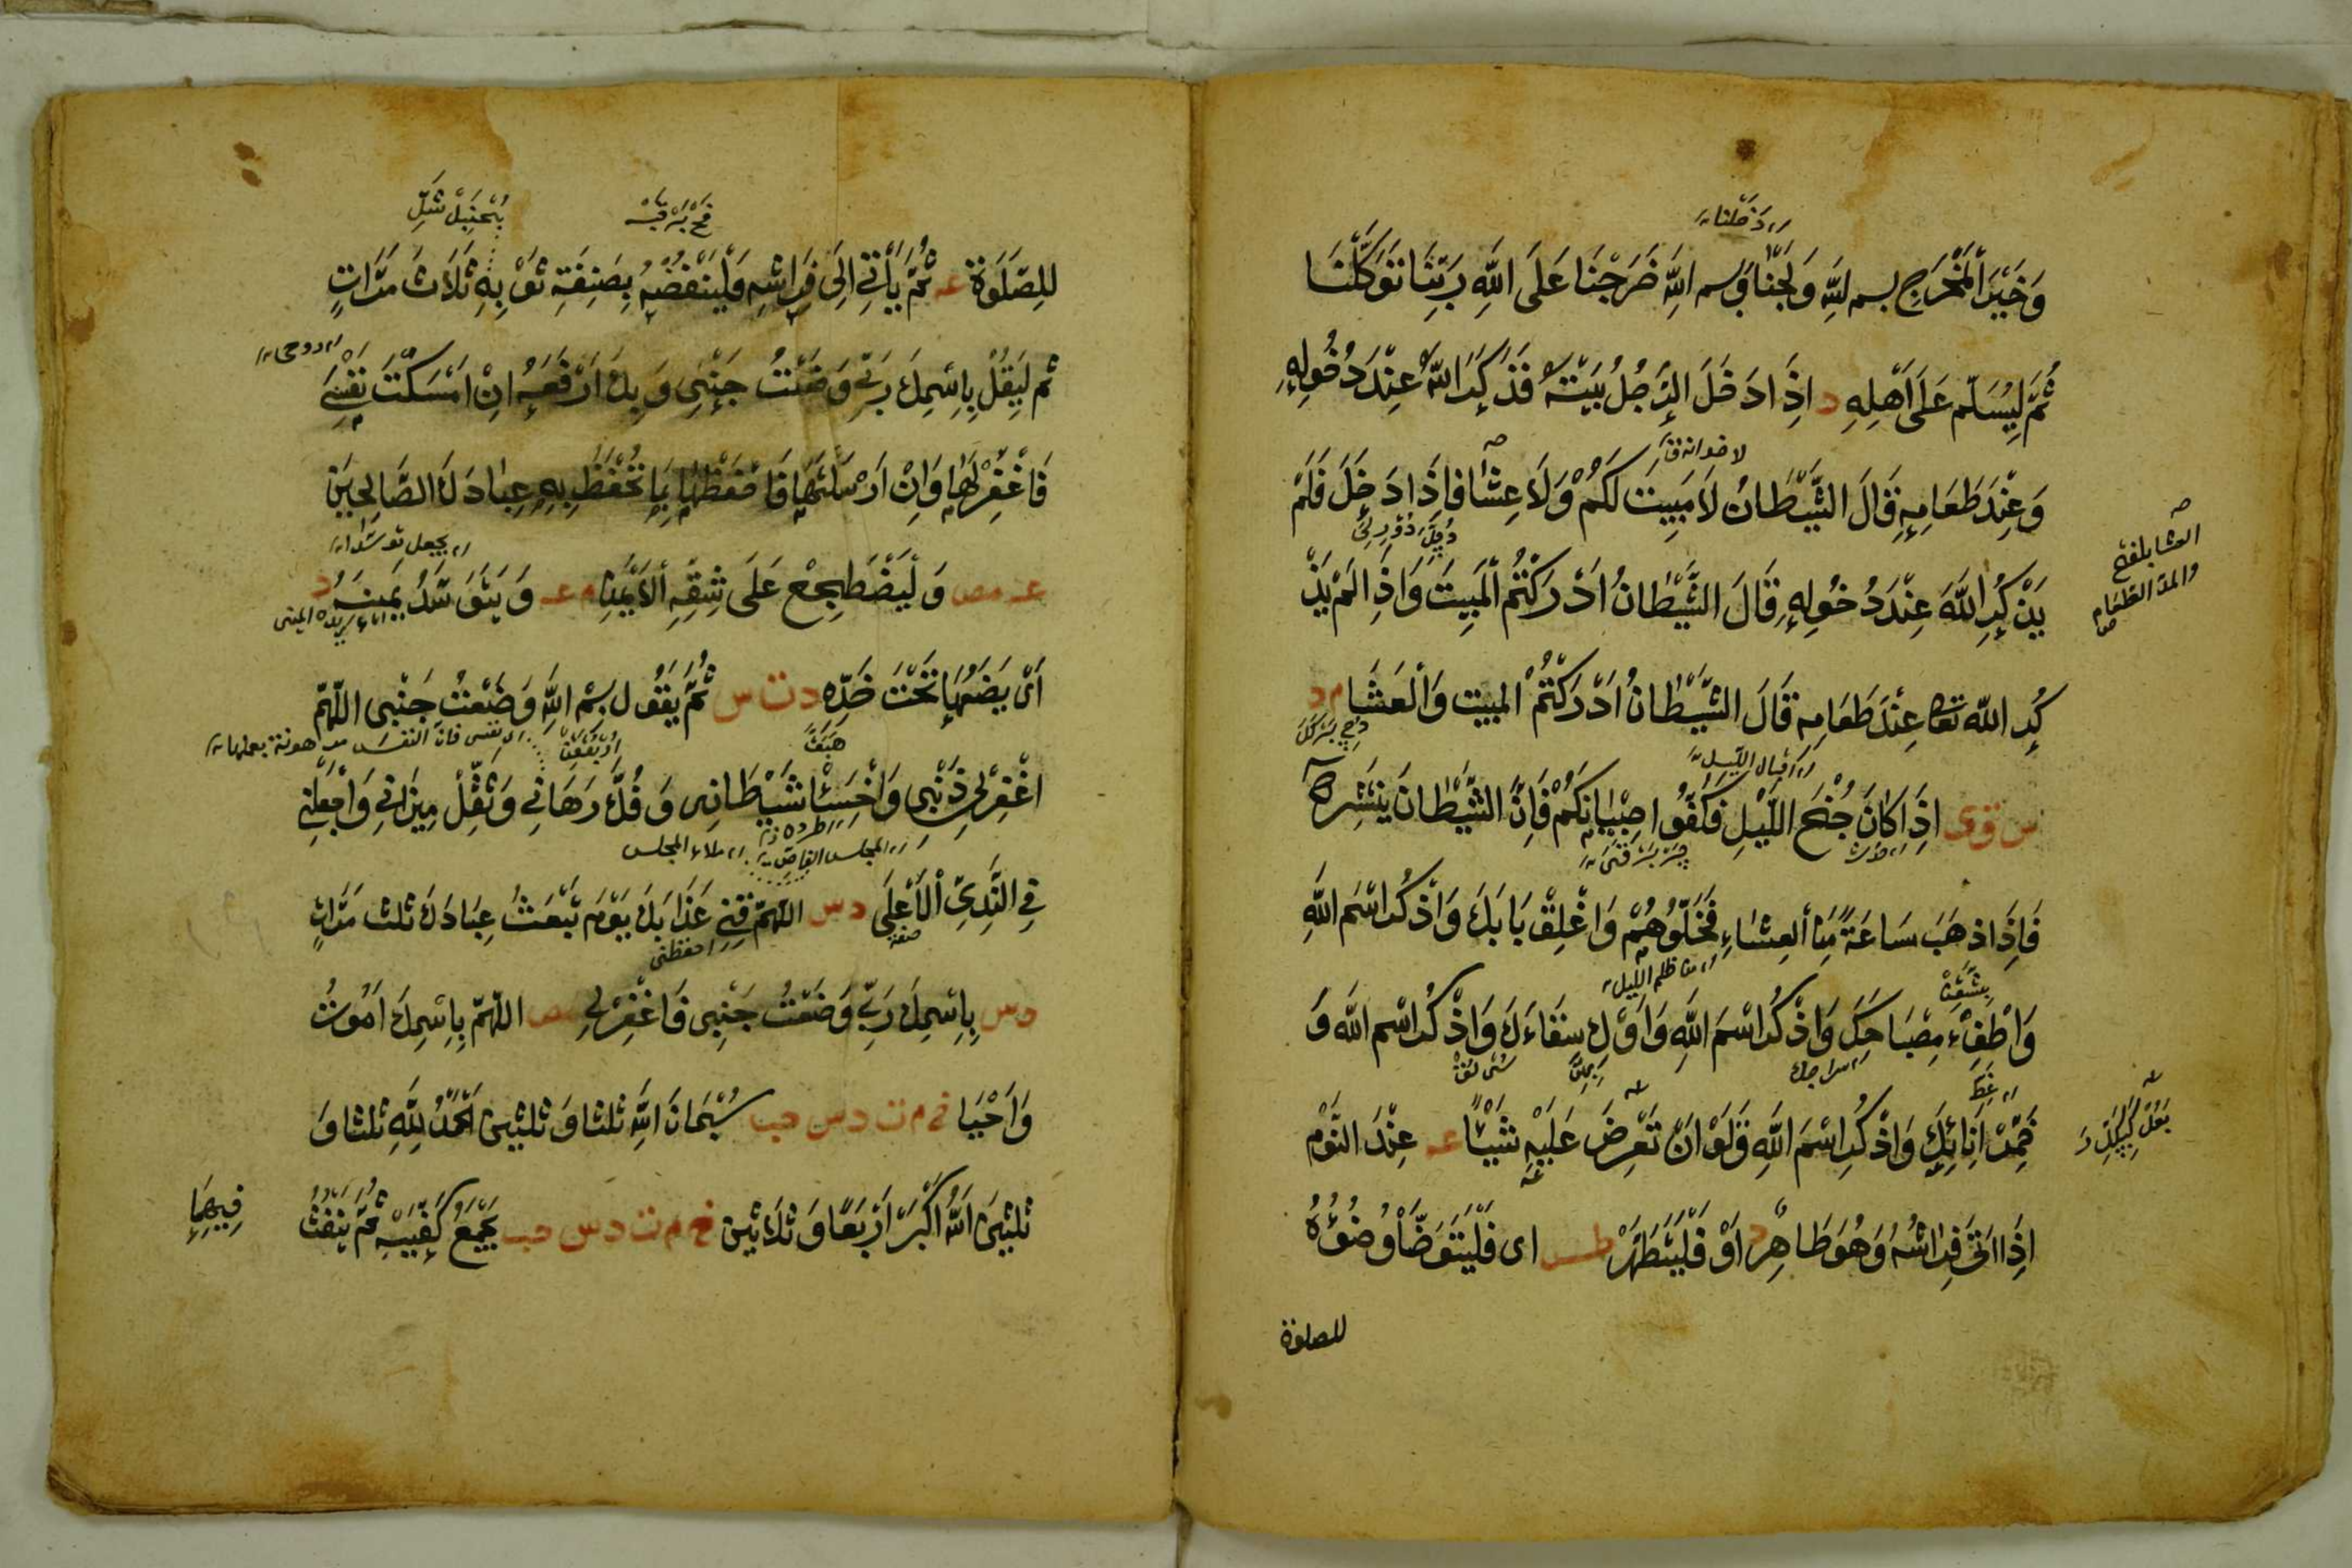 دَخَلْنَا
وَخَيْرَ الْمَخْرَجِ بسم للهِ وَلَجْنَا وَبسم اللهِ خَرَجْنَا عَلَى اللهِ رَبِّنَا تَوَكَّلْنَا
ثُمَّ لِيُسَلِّم عَلَى اَهْلِهِ د اِذَا دَخَلَ الرَّجُلُ بَيْتَهُ فَذَكَرَ اللهَ عِنْدَ دُخُولِهِ
وَعِنْدَ طَعَامِهِ قَالَ الشَّيْطَانُ لَا مَبِيتَ لَكُمْ وَلَا عِشَا فَاِذَا دَخَلَ فَلَمْ
العشا بلفتح
والمد الطعام
يَذْكُرِ اللهَ عِنْدَ دُخُولِهِ قَالَ الشَّيْطَانُ اَدْرَكْتُمُ الْمَبِيتَ وَاِذَا لَمْ يَذْ
كُرِ الله تعا عِنْدَ طَعَامِهِ قَالَ الشَّيْطَانُ اَدْرَكْتُمُ المبيت وَالْعَشَا م د
اقبال الليل
س ق ى اِذَا كَانَ جُنْحَ اللَّيْلِ فَكُفُّوا صِبْيَانَكُمْ فَاِنَّ الشَّيْطَانَ يَنْتَشِرُ
فَاِذَا ذهَبَ سَاعَةً مِنَ الْعِشَاءِ فَخَلُّوهُمْ وَاغْلِقْ بَابَكَ وَاذْكُرِ اسْمَ اللهِ
من ظلم الليل
وَاطْفِءْ مِصْبَاحَكَ وَاذْكُرِ اسْمَ اللهِ وَاَوْكِ سِقَاءَكَ وَاذْكُرِ اسْمِ اللهِ وَ
سراجك
خَمِّرْ اِنَائَكَ وَاذْكُرِ اسْمَ اللهِ وَلَوْ اَنْ تَعْرِضَ عَلَيْهِ شَيْئًا عـ عِنْدَ النَّوْمِ
اِذَا اَتَى فِرَاشُهُ وَهُوَ طَاهِرٌ د اَوْ فَلْيَتَطَهَّرْ طس اى فَلْيَتَوَضَّأْ وُضُوْءُهُ
للصلوة
لِلصَّلَوةِ عـ ثُمَّ يَأْتِي اِلَى فِرَاشِهِ فَلْيَنْفُضْهُ بِصَنِفَةِ ثَوْبِهِ ثَلَاثَ مَرَّاتٍ
روحى
ثم لْيَقُلْ بِاسْمِكَ رَبِّي وَضَعْتُ جَنْبِي وَبِكَ اَرْفَعُهُ اِنْ اَمْسَكْتَ نَفْسِي
فَاغْفِرْ لَهَا وَاِنْ اَرْسَلْتَهَا فَاحْفَظْهَا بِمَا تَحْفَظُ بِهِ عِبَادَكَ الصَّالِحِيْنَ
عـ مص وَلْيَضْطَجِعْ عَلَى شِقِّهِ الْاَيْمَنِ م عـ وَيَتَوَسَّدُ يَمِينَهُ د
اَىْ يَضَعُهَا تَحْتَ خَدِّهِ د ت س ثُمَّ يَقُول بِسْمِ اللهِ وَضَعْتُ جَنْبِى اللّهُمَّ
اغْفِرْ لِي ذَنْبِى وَاخْسَئْا شَيْطَانِى وَفُكَّ رِهَانِي وَثَقِّلْ مِيزَانِي وَاجْعَلْنِي
طرده
المجلس
فِي النَّدِىِّ الْاَعْلَى د س اللّهُمَّ قِنِي عَذَابَكَ يَوْمَ تَبْعَثُ عِبَادَكَ ثلث مَرَّاتٍ
احفظنى
د س بِاسْمِكَ رَبِّي وَضَعْتُ جَنْبِى فَاغْفِرْ لِي مص اللّهُمّ بِاسْمِكَ اَمُوتُ
وَاَحْيَا خ م ت د س حب سُبْحَانَ اللهِ ثلثا وَثلثين اَلْحَمْدُ لِلّهِ ثلثا وَ
ثلثين اَللهُ اَكْبَرُ اَرْبَعًا وَثَلَاثِيْن خ م ت د س حب يَجْمَعُ كَفَّيْهِ ثُمَّ يَنْفُثُ
فِيهِمَا